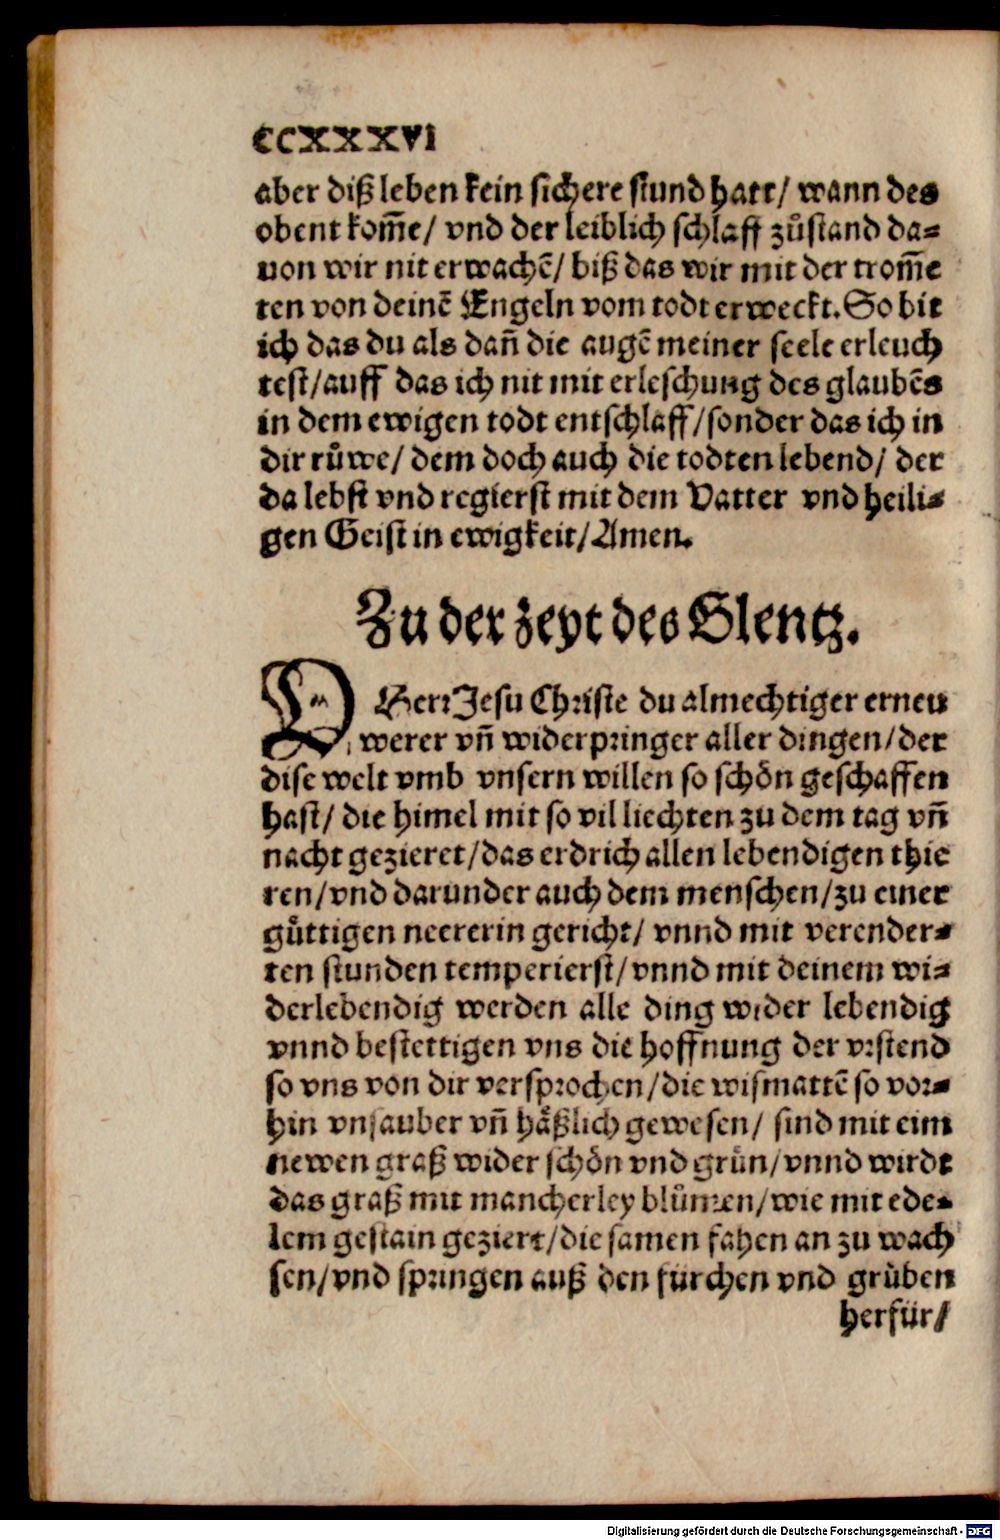 CCXXXVI
aber diß leben kein sichere stund hatt/ wann des
obent kom̃e/ vnd der leiblich schlaff zůstand da⸗
uon wir nit erwachẽ/ biß das wir mit der trom̃e
ten von deinẽ Engeln vom todt erweckt. So bit
ich das du als dañ die augẽ meiner seele erleuch
test/auff das ich nit mit erleschung des glaubẽs
in dem ewigen todt entschlaff/sonder das ich in
dir růwe/ dem doch auch die todten lebend/ der
da lebst vnd regierst mit dem Vatter vnd heili⸗
gen Geist in ewigkeit/Amen.
Zu der zeyt des Glentz.
O Herr Jesu Christe du almechtiger erneu
werer vñ widerpringer aller dingen/der
dise welt vmb vnsern willen so schön geschaffen
hast/ die himel mit so vil liechten zu dem tag vñ
nacht gezieret/das erdrich allen lebendigen thie
ren/vnd darunder auch dem menschen/zu einer
gůttigen neererin gericht/ vnnd mit verender⸗
ten stunden temperierst/vnnd mit deinem wi⸗
derlebendig werden alle ding wider lebendig
vnnd bestettigen vns die hoffnung der vrstend
so vns von dir versprochen/die wismattẽ so vor⸗
hin vnsauber vñ häßlich gewesen/ sind mit eim
newen graß wider schön vnd grün/vnnd wirdt
das graß mit mancherley blůmen/wie mit ede⸗
lem gestain geziert/die samen fahen an zu wach
sen/vnd springen auß den furchen vnd grůben
herfür/
Digitalisierung gefördert durch die Deutsche Forschungsgemeinschaft - DFG